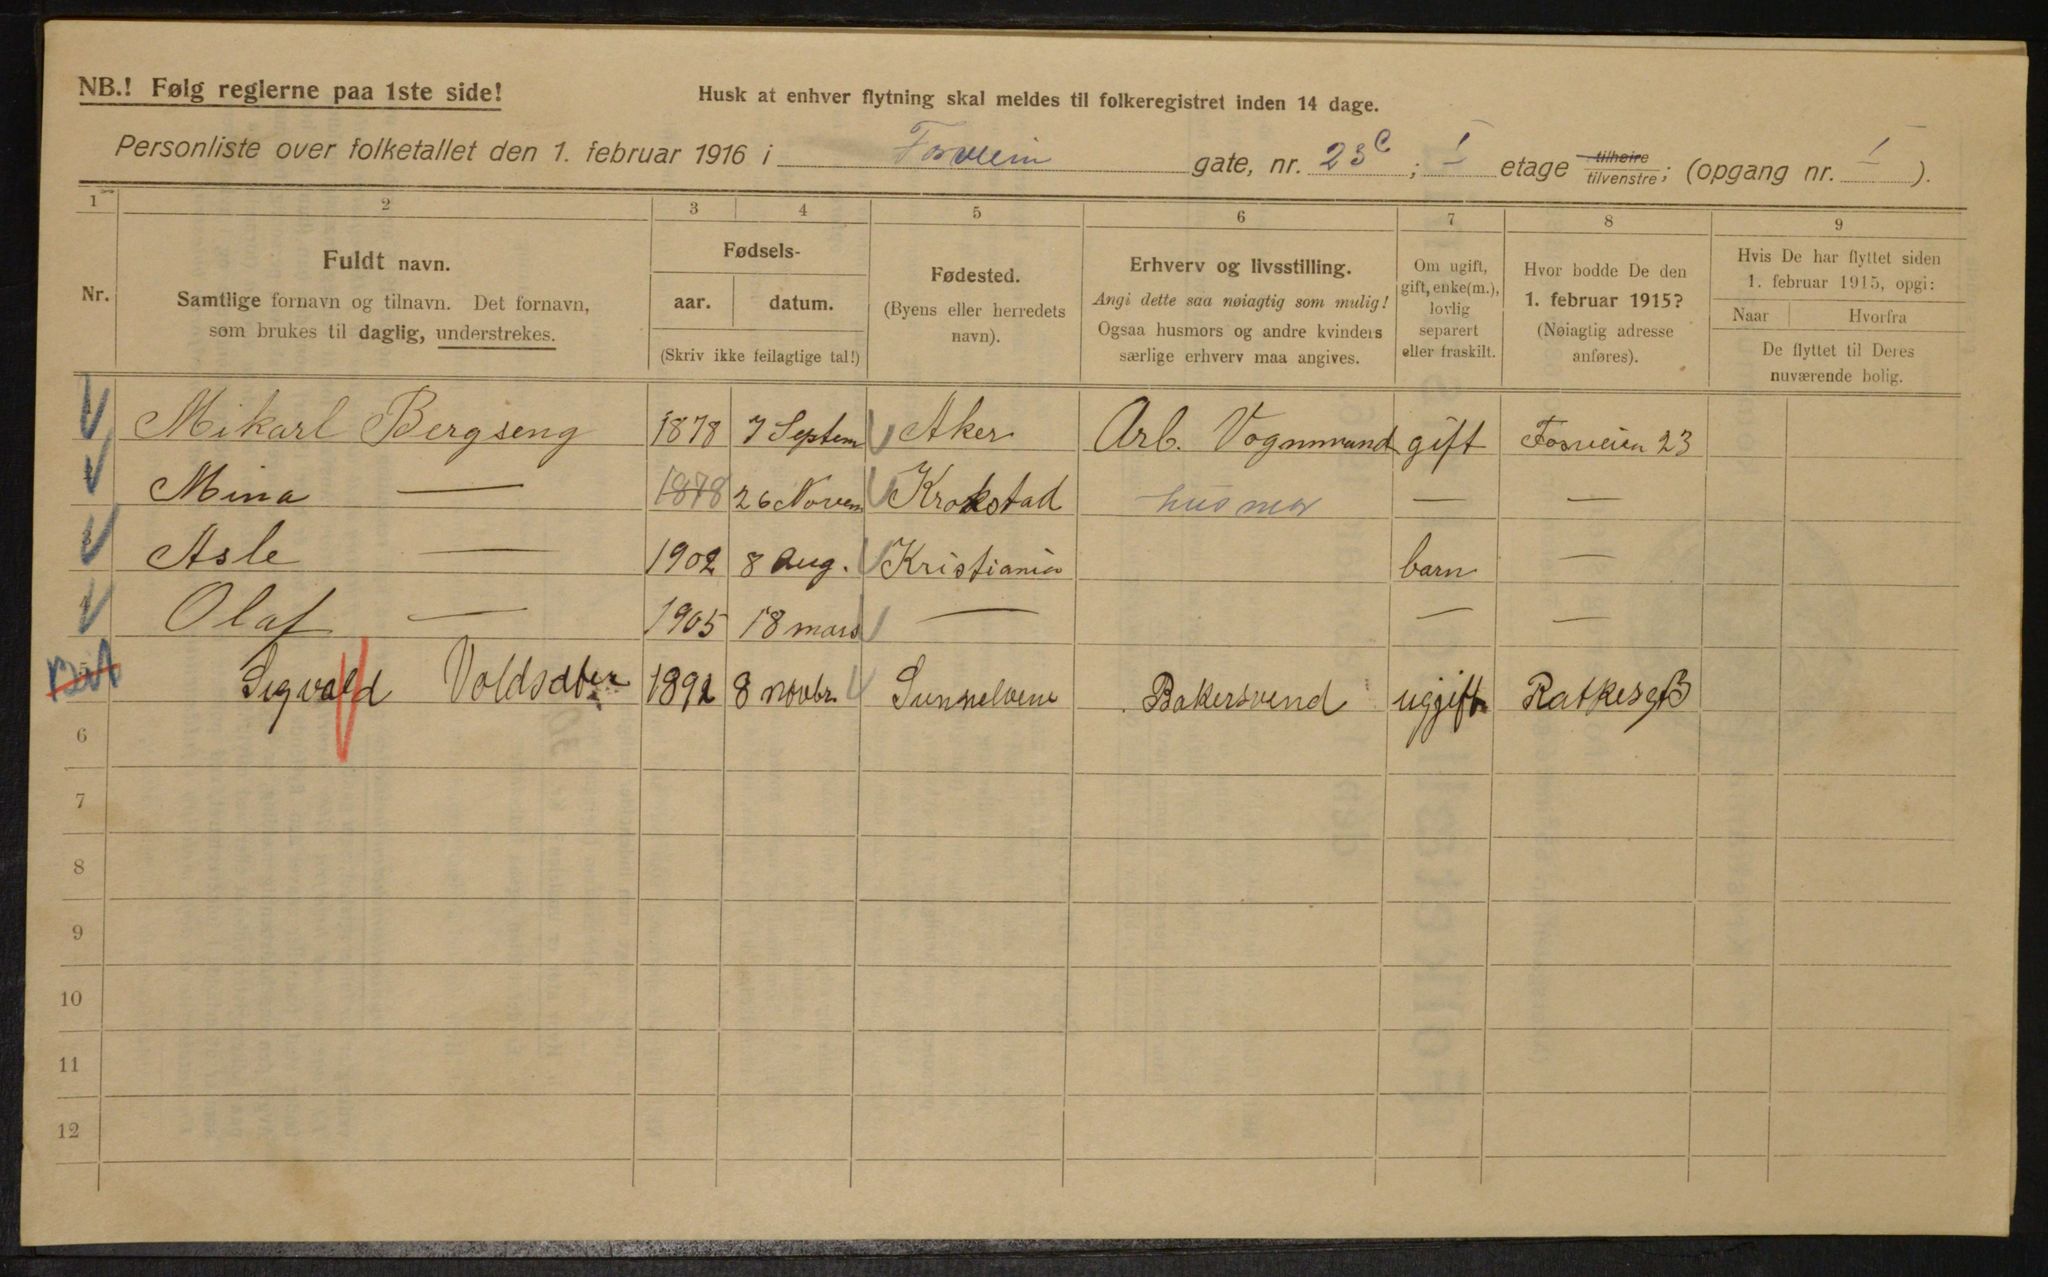 NB.! Følg reglerne paa 1ste side!
Husk at enhver flytning skal meldes til folkeregistret inden 14 dage.
Personliste over folketallet den 1. februar 1916 i Fosveien gate, nr. 23C; I etage tilhøire tilvenstre; (opgang nr. I).
1 2 3 4 5 6 7 8 9
Nr.
Fuldt navn.
Samtlige fornavn og tilnavn. Det fornavn,
som brukes til daglig, understrekes.
Fødsels-
aar. datum.
(Skriv ikke feilagtige tal!)
Fødested.
(Byens eller herredets
navn).
Erhverv og livsstilling.
Angi dette saa nøiagtig som mulig!
Ogsaa husmors og andre kvinders
særlige erhverv maa angives.
Om ugift,
gift, enke(m.),
lovlig
separert
eller fraskilt.
Hvor bodde De den
1. februar 1915?
(Nøiagtig adresse
anføres).
Hvis De har flyttet siden
1. februar 1915, opgi:
Naar Hvorfra
De flyttet til Deres
nuværende bolig.
Mikarl Bergseng 1878 7 Septem Aker Arb. Vognmand gift Fosveien 23
Mina — 1878 26 Novem Krokstad husmor — —
Asle — 1902 8 Aug. Kristiania barn —
Olaf — 1905 18 mars — — —
5 Sigvald Voldsdter 1892 8 novbr. Sunnelvene Bakersvend ugift Ratkesgt 3
6
7
8
9
10
11
12